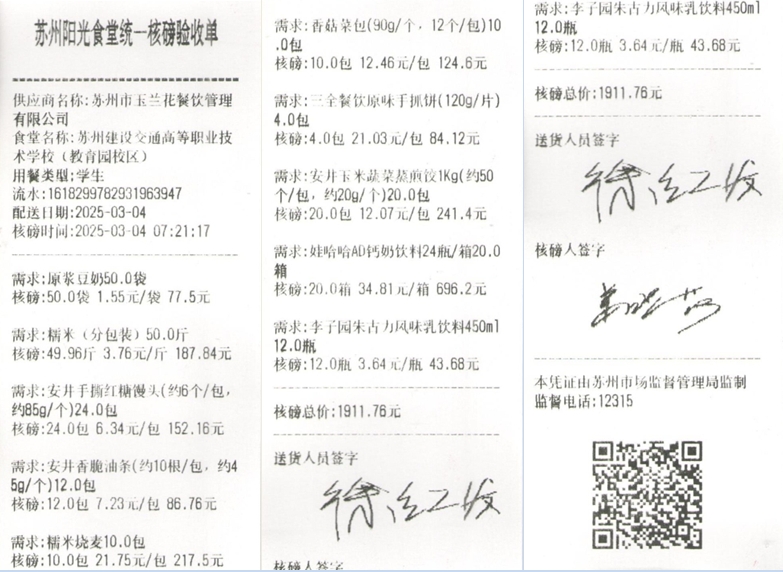 苏州阳光食堂统一核磅验收单
供应商名称:苏州市玉兰花餐饮管理
有限公司
食堂名称:苏州建设交通高等职业技
术学校（教育园校区）
用餐类型:学生
流水:1618299782931963947
配送日期:2025-03-04
核磅时间:2025-03-04 07:21:17
需求:原浆豆奶50.0袋
核磅:50.0袋 1.55元/袋 77.5元
需求:糯米（分包装）50.0斤
核磅:49.96斤 3.76元/斤 187.84元
需求:安井手撕红糖馒头(约6个/包,
约85g/个)24.0包
核磅:24.0包 6.34元/包 152.16元
需求:安井香脆油条(约10根/包，约4
5g/个)12.0包
核磅:12.0包 7.23元/包 86.76元
需求:糯米烧麦10.0包
核磅:10.0包 21.75元/包 217.5元
需求:香菇菜包(90g/个，12个/包)10
.0包
核磅:10.0包 12.46元/包 124.6元
需求:三全餐饮原味手抓饼(120g/片)
4.0包
核磅:4.0包 21.03元/包 84.12元
需求:安井玉米蔬菜蒸煎饺1Kg(约50
个/包，约20g/个)20.0包
核磅:20.0包 12.07元/包 241.4元
需求:娃哈哈AD钙奶饮料24瓶/箱20.0
箱
核磅:20.0箱 34.81元/箱 696.2元
需求:李子园朱古力风味乳饮料450ml
12.0瓶
核磅:12.0瓶 3.64元/瓶 43.68元
核磅总价:1911.76元
送货人员签字
核磅人签字
需求:李子园朱古力风味乳饮料450ml
12.0瓶
核磅:12.0瓶 3.64元/瓶 43.68元
核磅总价:1911.76元
送货人员签字
核磅人签字
本凭证由苏州市场监督管理局监制
监督电话:12315